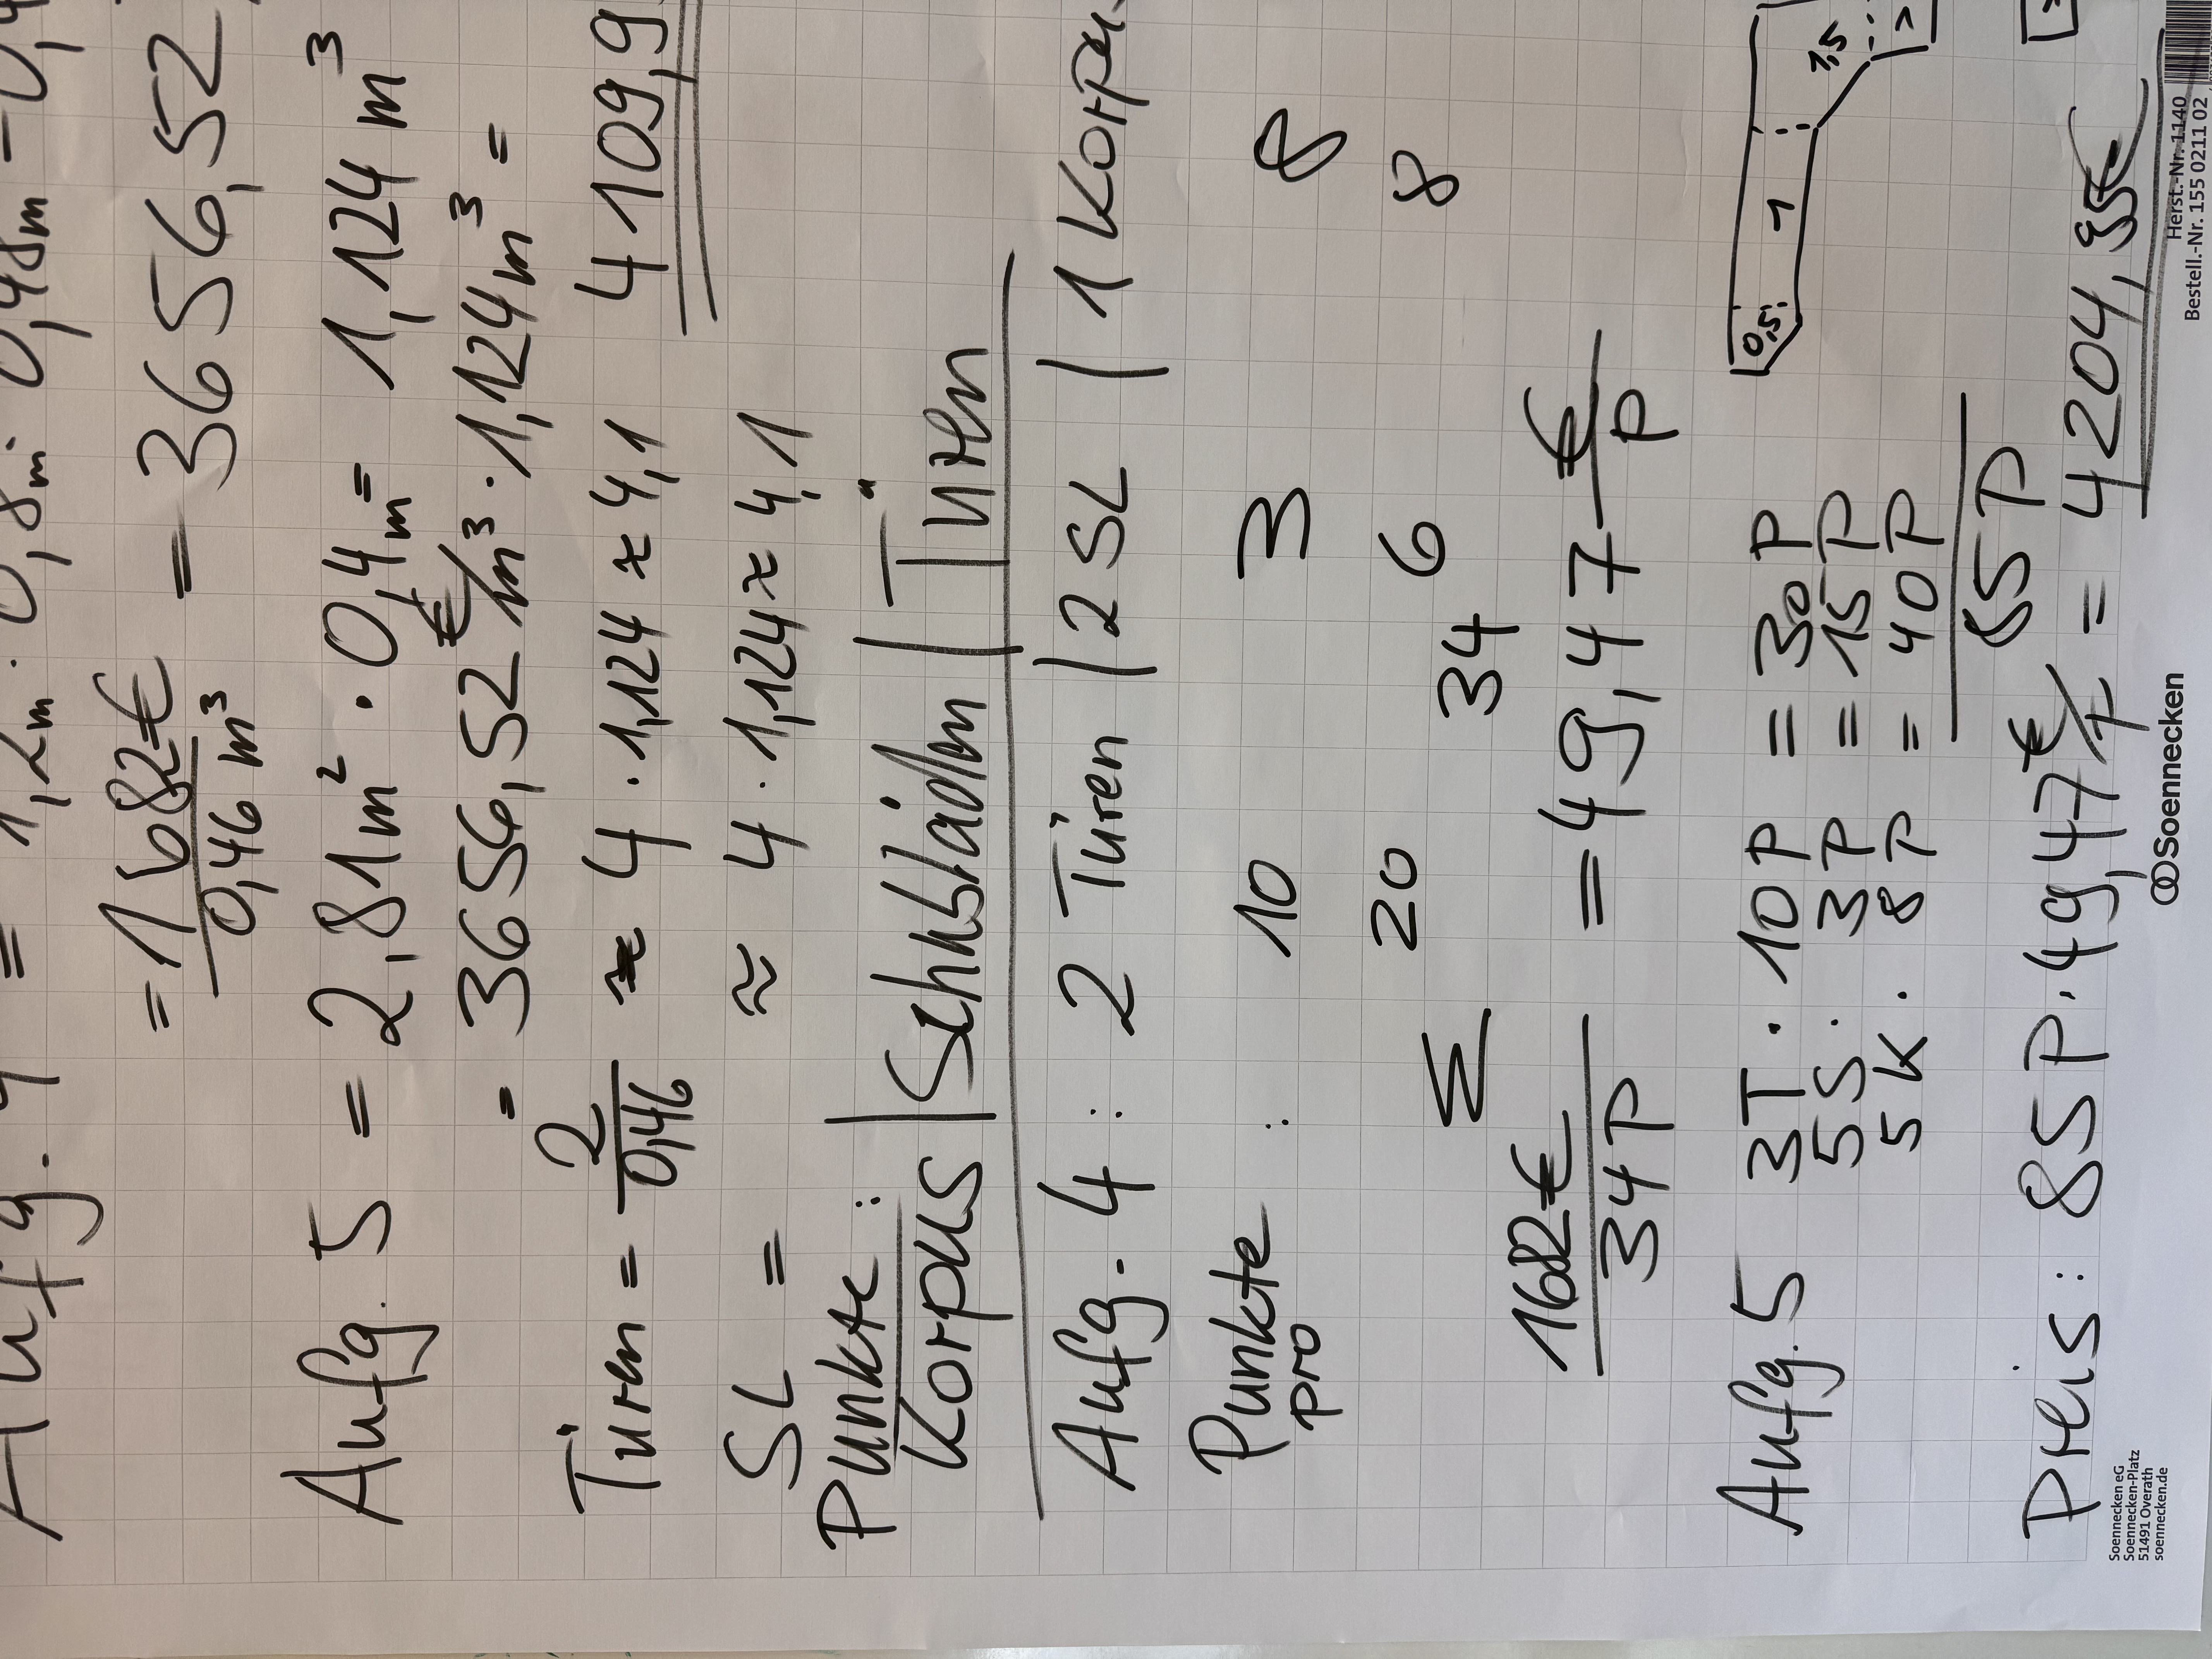 Aufg. 4 = 1,2m · 0,8m · 0,48m = 0,4
= 1682€ / 0,46 m³ = 3656,52
Aufg. 5 = 2,81m² · 0,4m = 1,124 m³
= 3656,52 €/m³ · 1,124m³ =
Türen = 2 / 0,46 ≈ 4 · 1,124 ≈ 4,1 4109,9
SL = ≈ 4 · 1,124 ≈ 4,1
Punkte :
Korpus | Schubläden | Türen
Aufg. 4 : 2 Türen | 2 SL | 1 Korpu
Punkte pro : 10 3 8
20 6 8
Σ 34
1682€ / 34 P = 49,47 € / P
Aufg. 5 3T · 10 P = 30 P
5S · 3 P = 15 P
5 K · 8 P = 40 P
85 P
0,5 1 1,5
Preis : 85 P · 49,47 €/P = 4204,95€
Soennecken eG
Soennecken-Platz
51491 Overath
soennecken.de
Soennecken
Herst.-Nr. 1140
Bestell.-Nr. 155 0211 02